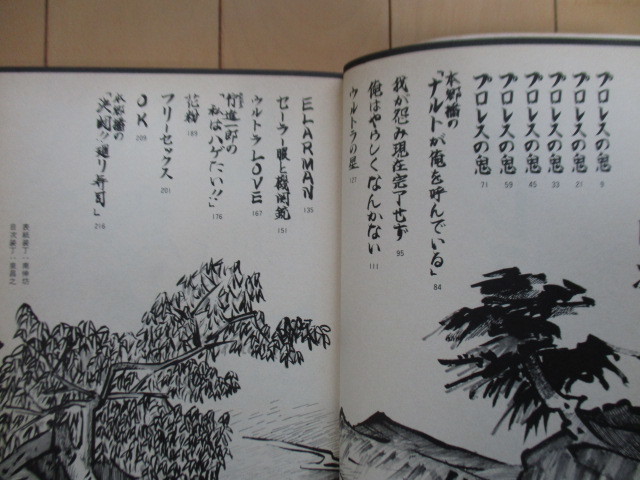 プロレスの鬼 9
プロレスの鬼 21
プロレスの鬼 33
プロレスの鬼 45
プロレスの鬼 59
プロレスの鬼 71
水野楹の
「ナルトが俺を呼んでいる」 84
我が怨み現在完了せず 95
俺はやらしくなんかない 111
ウルトラの星 127
ELARMAN 135
セーラー服と機関銃 151
ウルトラLOVE 167
竹造一郎の
「私はハゲにい!!」 176
花粉 189
フリーセックス 201
OK 209
「決闘!!廻り寿司」 216